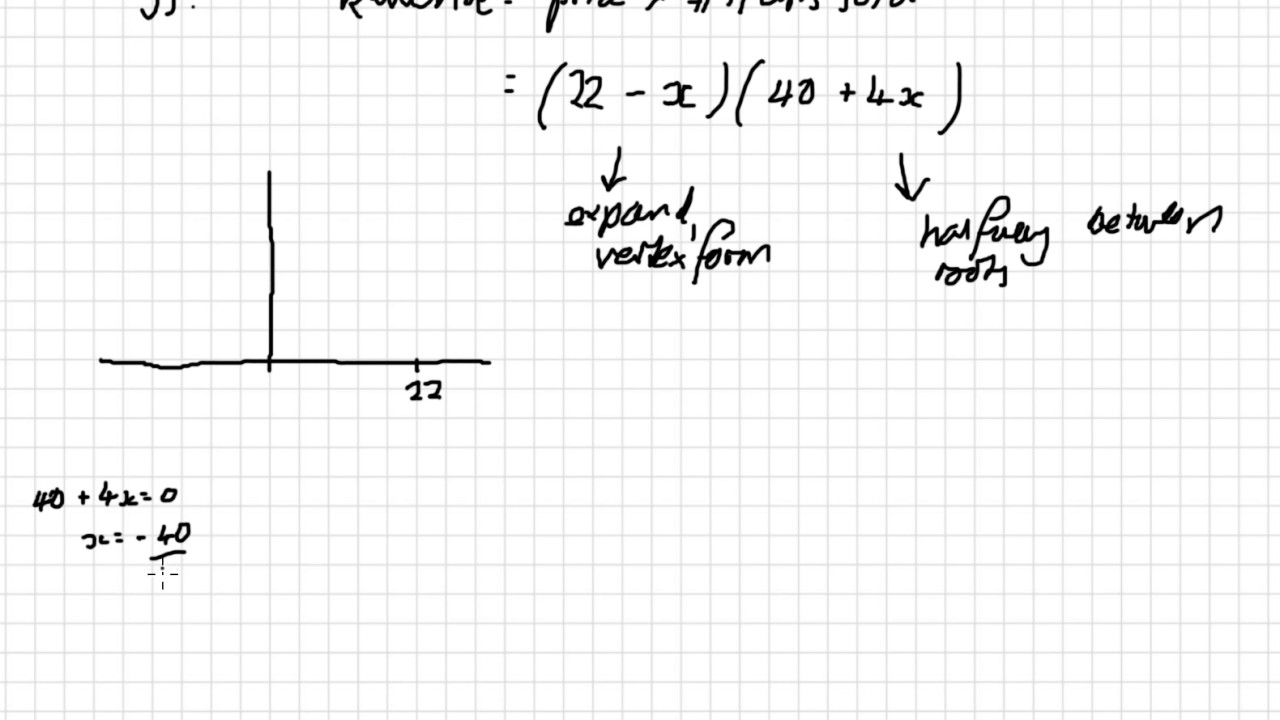 Revenue = price × # items sold.
= (22 - x)(40 + 4x)
expand,
vertex form
halfway between
roots
22
40 + 4x = 0
x = - 40